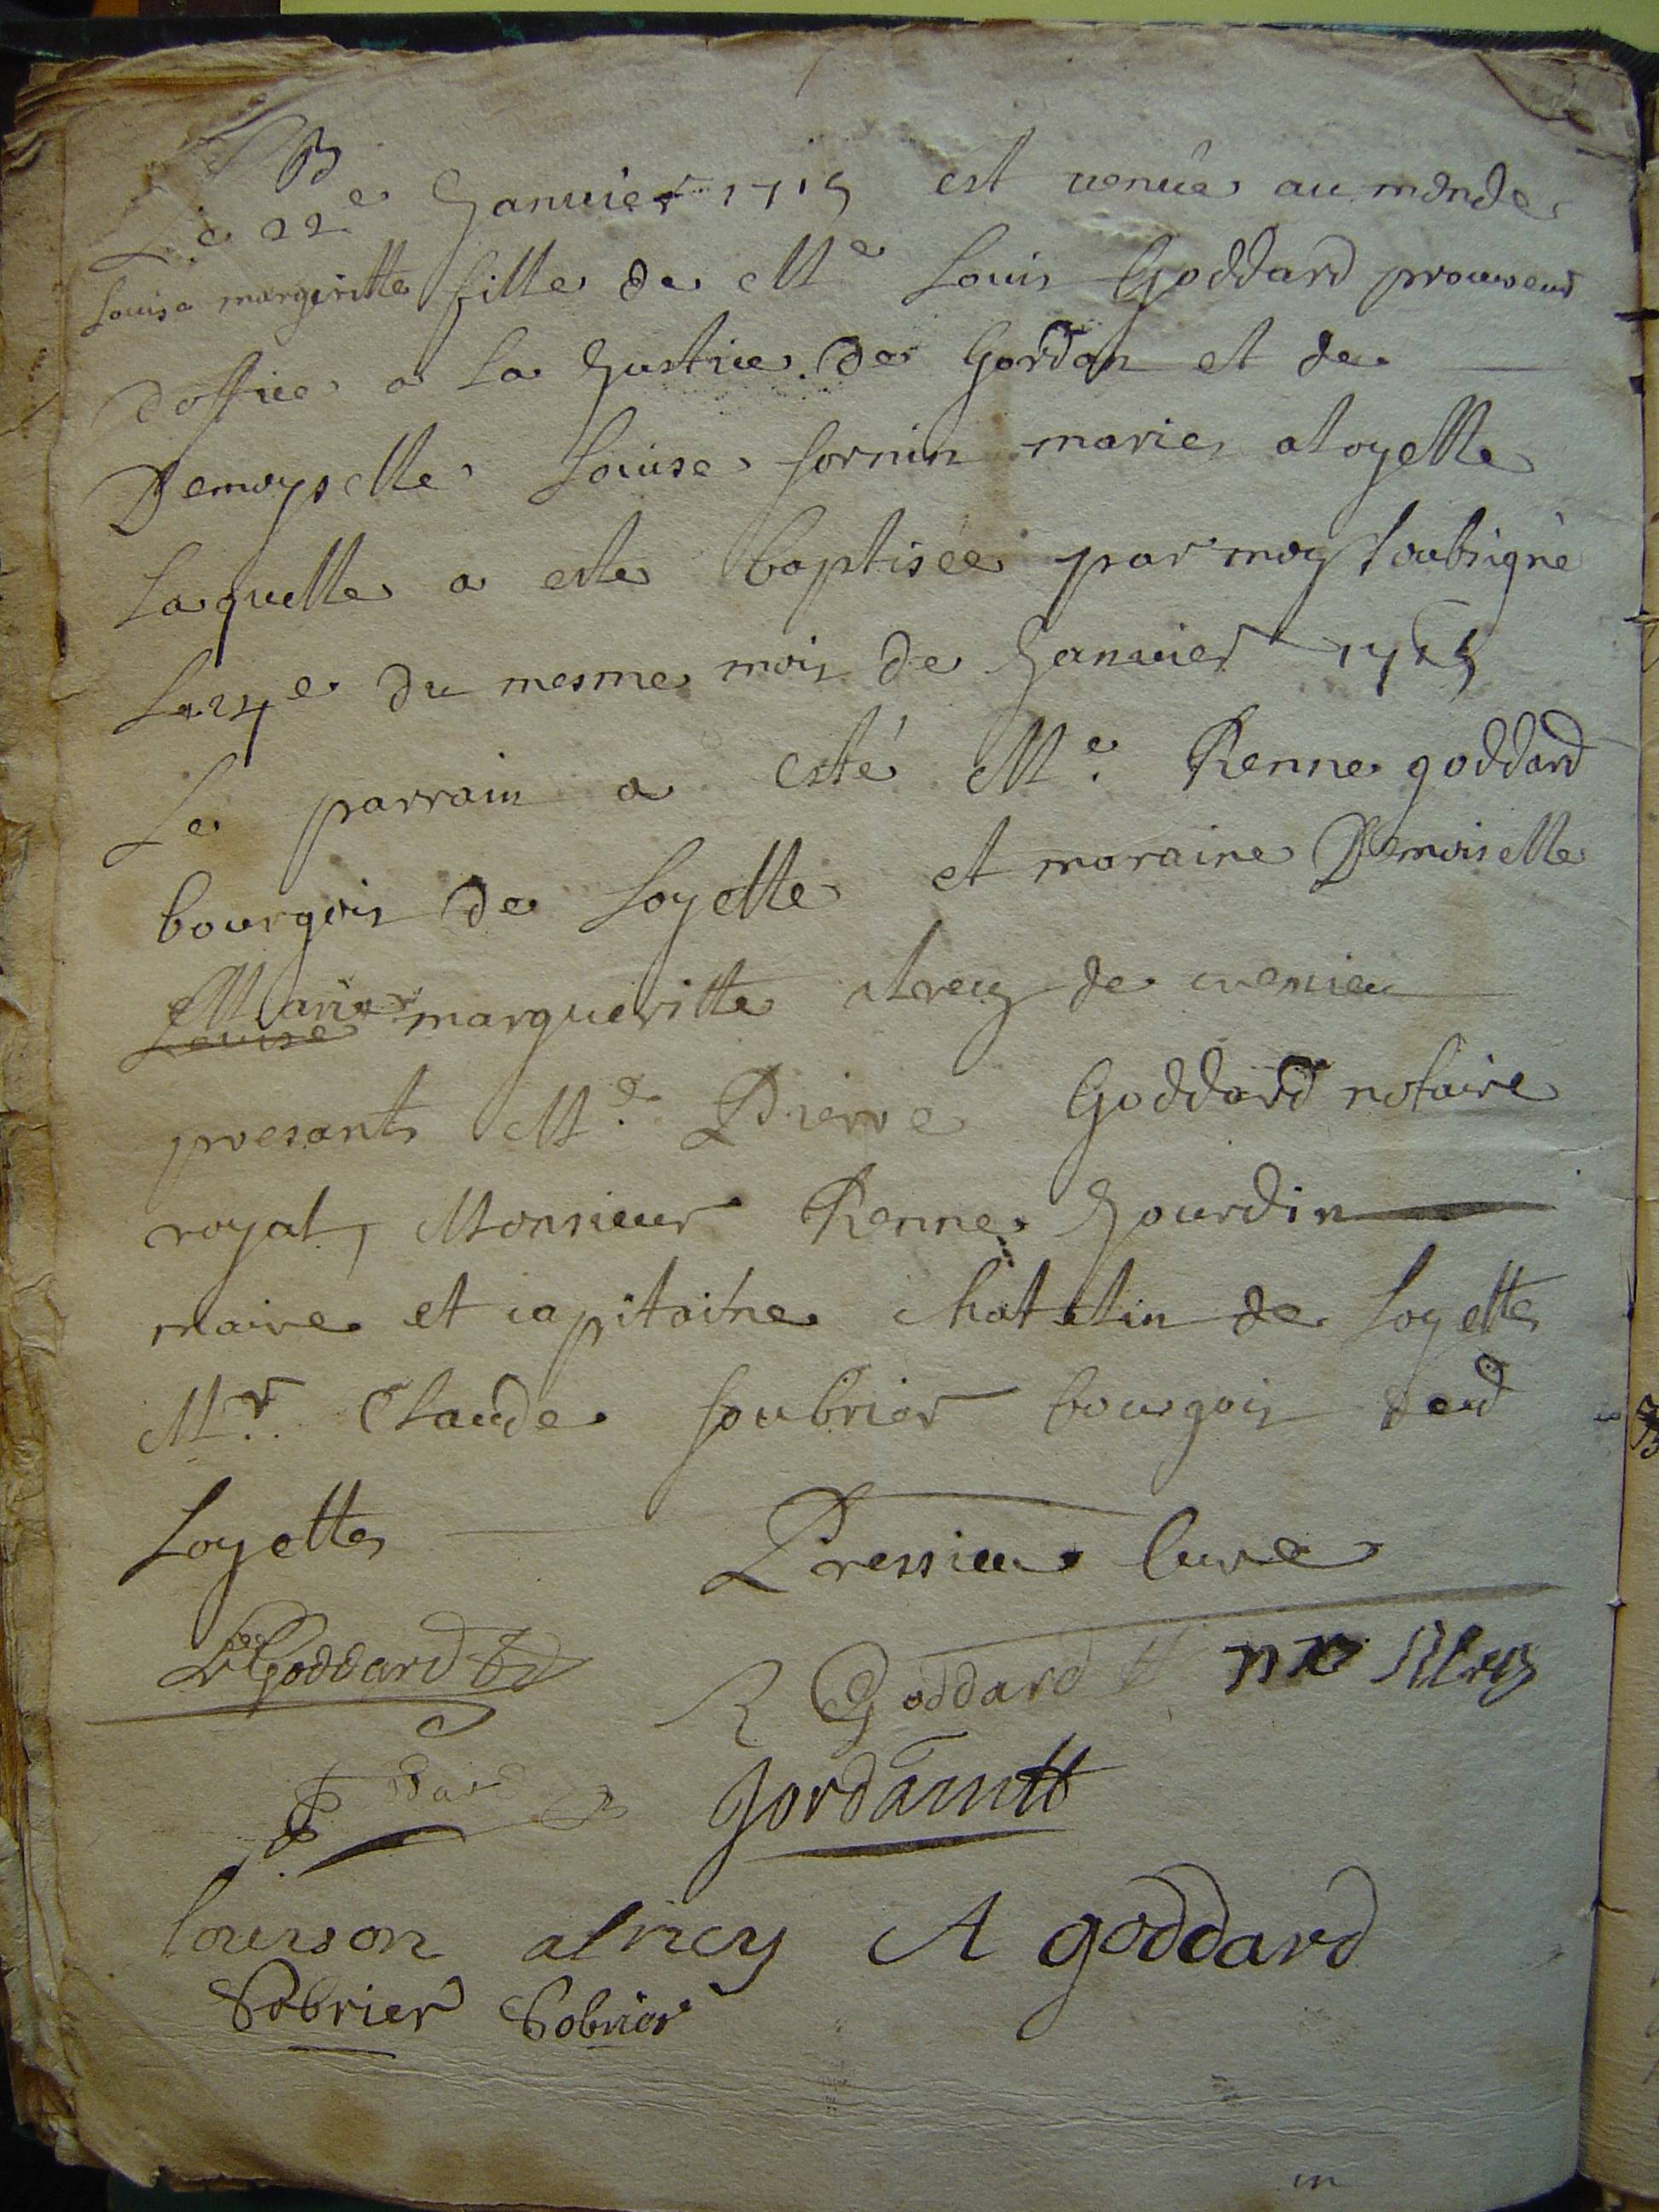 B
Le 22e Janvier 1715 est venue au monde
Louise margeritte fille de Me Louis Goddard procureur
doffice a la Justice de Gordan et de
Demoyselle Louise fornin maries a loyette
Laquelle a este baptisée par moy soubsigné
Le 24e du mesme mois de Janvier 1715
Le parrain a esté Me. Renne goddard
bourgois de Loyette et maraine Demoiselle
Marie
Louise margueritte alrecy de cremieu
presants Me. Pierre Goddard notaire
royal, Monsieur Renne Jourdin
maire et capitaine chatelin de Loyettes
Mr. Claude soubrier bourgois dud
Loyettes
Pressieu Cure
L Goddard
R Goddard
Jordain
louison alricy A goddard
Sobrier Sobrier